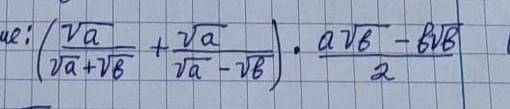 ие: (√a / (√a + √b) + √a / (√a - √b)) · (a√b - b√b) / 2